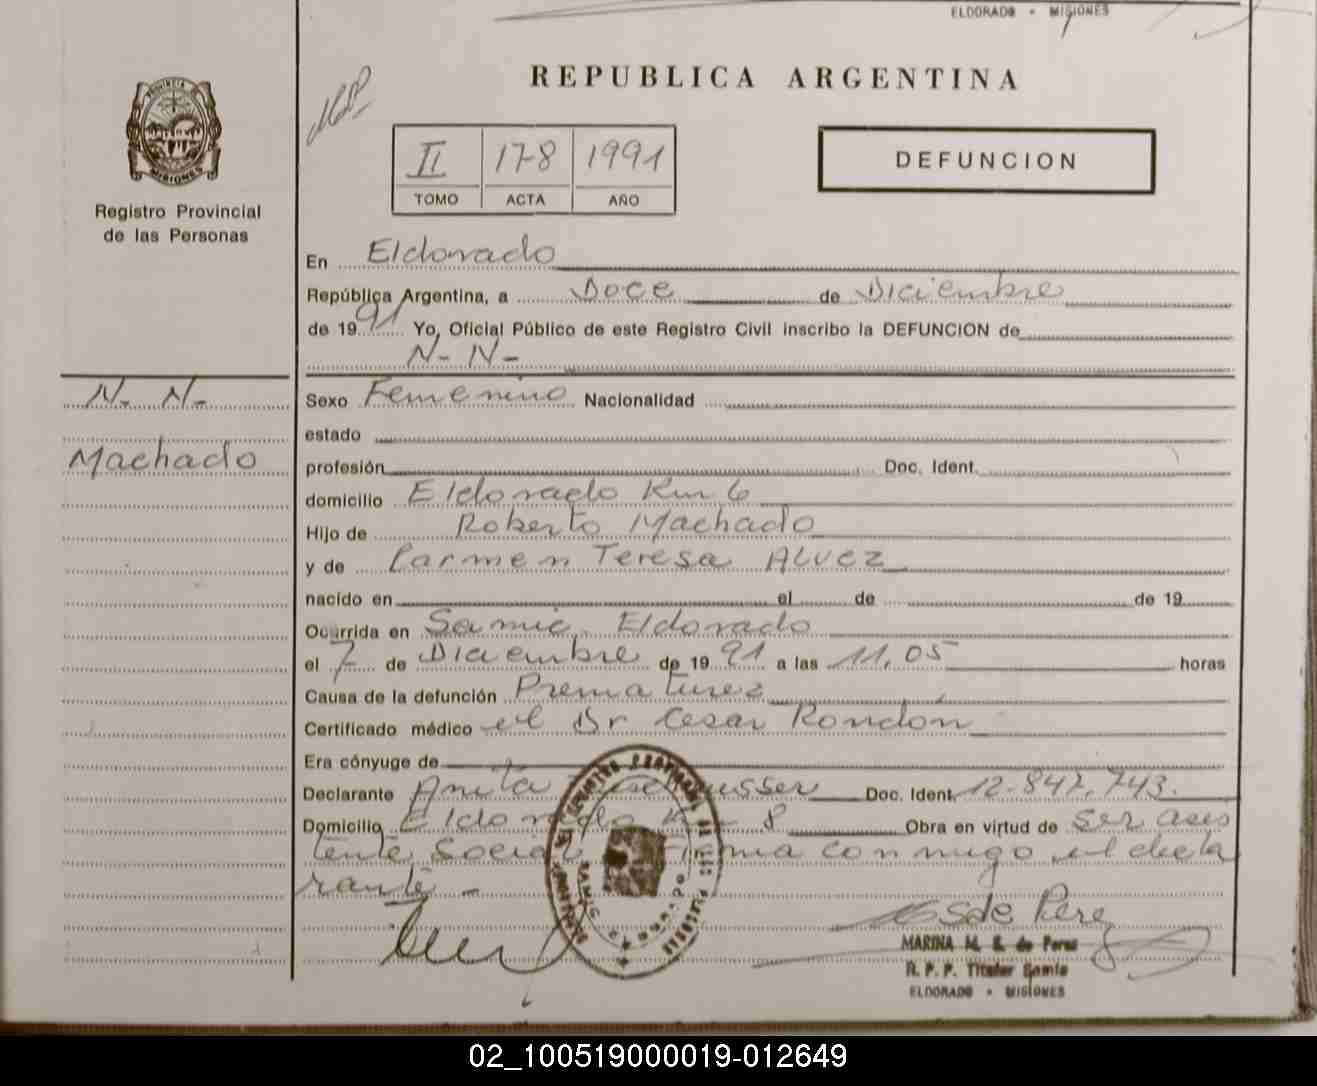 ELDORADO - MISIONES
REPUBLICA ARGENTINA
PROVINCIA DE
MISIONES
Registro Provincial
de las Personas
II 178 1991
TOMO ACTA AÑO
DEFUNCION
En Eldorado
República Argentina, a Doce de Diciembre
de 1991 Yo, Oficial Público de este Registro Civil inscribo la DEFUNCION de
N- N-
N- N-
Machado
Sexo Femenino Nacionalidad
estado
profesión Doc. Ident.
domicilio Eldorado Km 6
Hijo de Roberto Machado
y de Carmen Teresa Alvez
nacido en el de de 19
Ocurrida en Samic, Eldorado
el 7 de Diciembre de 1991 a las 11,05 horas
Causa de la defunción Prematurez
Certificado médico el Dr Cesar Rondón
Era cónyuge de
Declarante Anita Doc. Ident. 12-847.743.
Domicilio Eldorado Km 8 Obra en virtud de ser asis
tente Social Firma conmigo el decla
rante -
MARINA M. S. de Perez
R. P. P. Titular Samic
ELDORADO - MISIONES
02_100519000019-012649